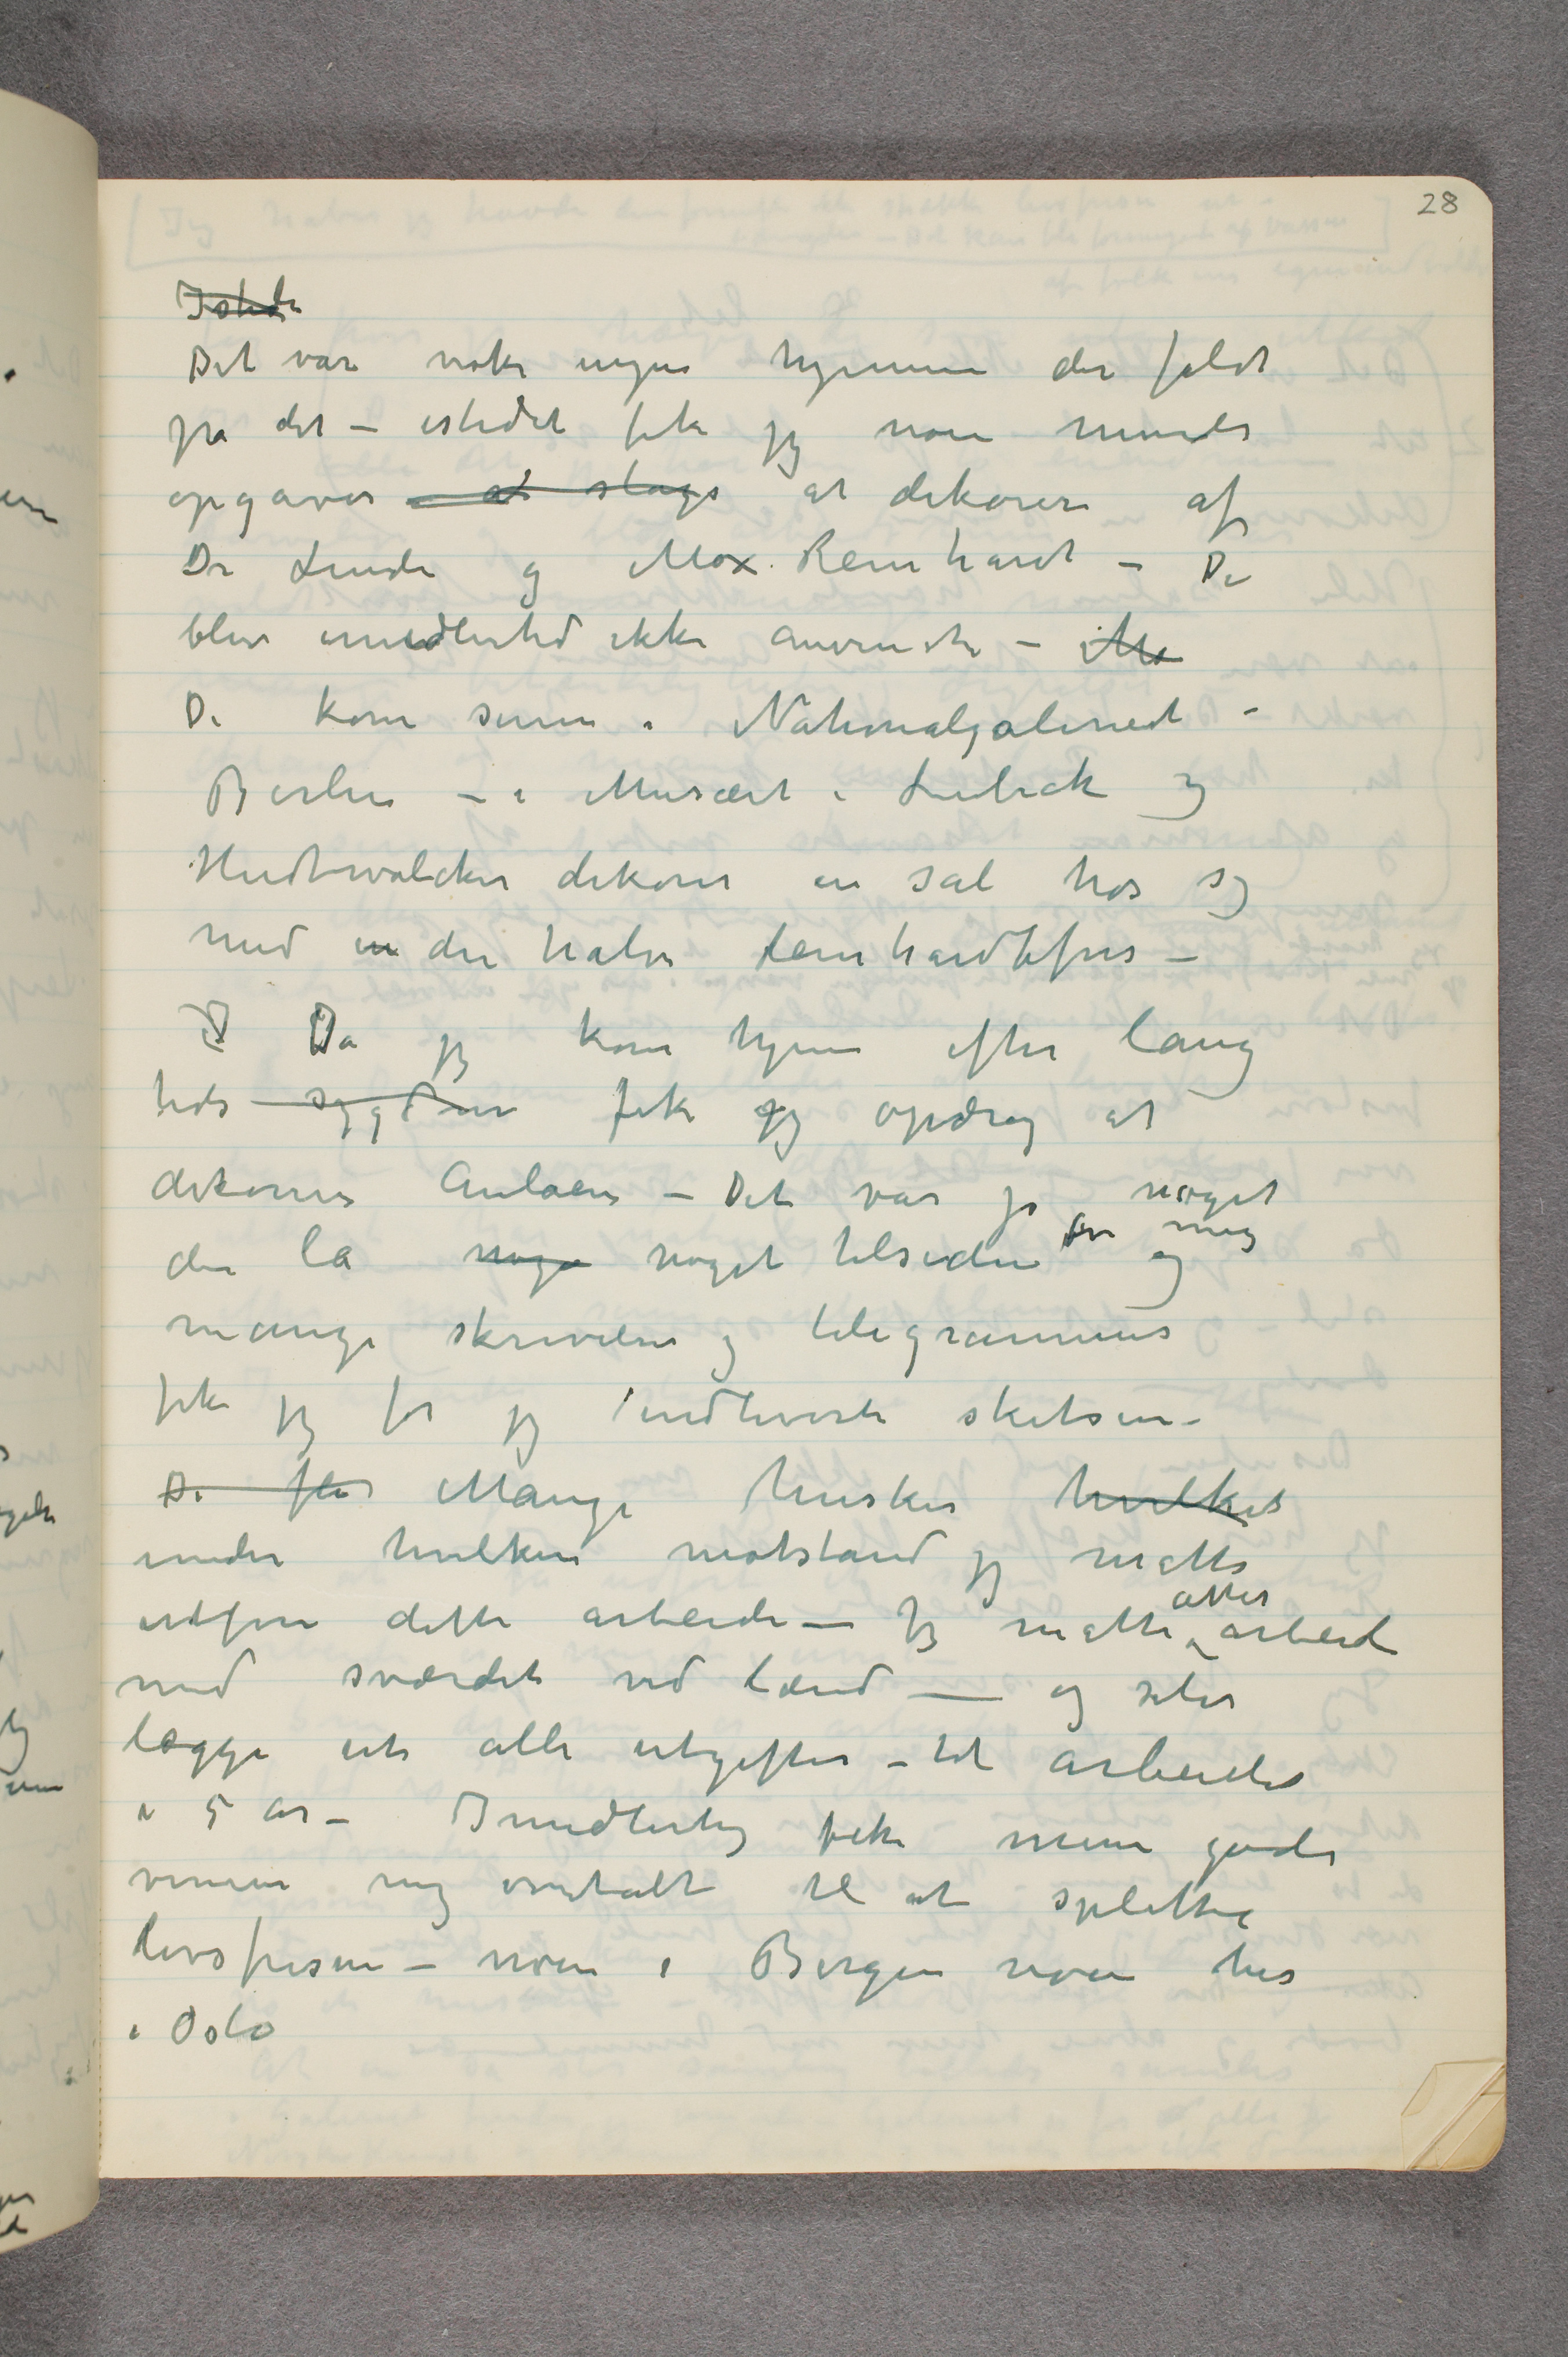 28
Istede
Det var nok ingen hjemme der faldt
på det – istedet fik jeg noen mindre
opgaver – at slags at dekorere af
Dr Linde og Max Reinhardt – De
blev imidlertid ikke anvendt –
De kom senere i Nationalgaleriet i
Berlin – i Musæet i Lubeck og
Hudtwalcker dekorer en sal hos sig
med en den halve Reinhardtfris –
I Da jeg kom hjem efter lang
tids sygdom fik jeg opdrag at
dekorere Aulaen – Det var jo noget
der lå noge noget tilsiden for mig og
mange skrivelser og telegrammer
fik jeg før jeg indleverte skitsen –
De fle Mange husker hvilket
under hvilken motstand jeg måtte
utføre dette arbeide – Jeg måtte atter arbeide
med sværdet ved lænd – og selv
lægge ut alle utgifter – til arbeidet
i 5 år – Imidlertig fik mine gode
venner mig overtalt til at splitte
livsfrisen – noen i Bergen noen her
i Oslo